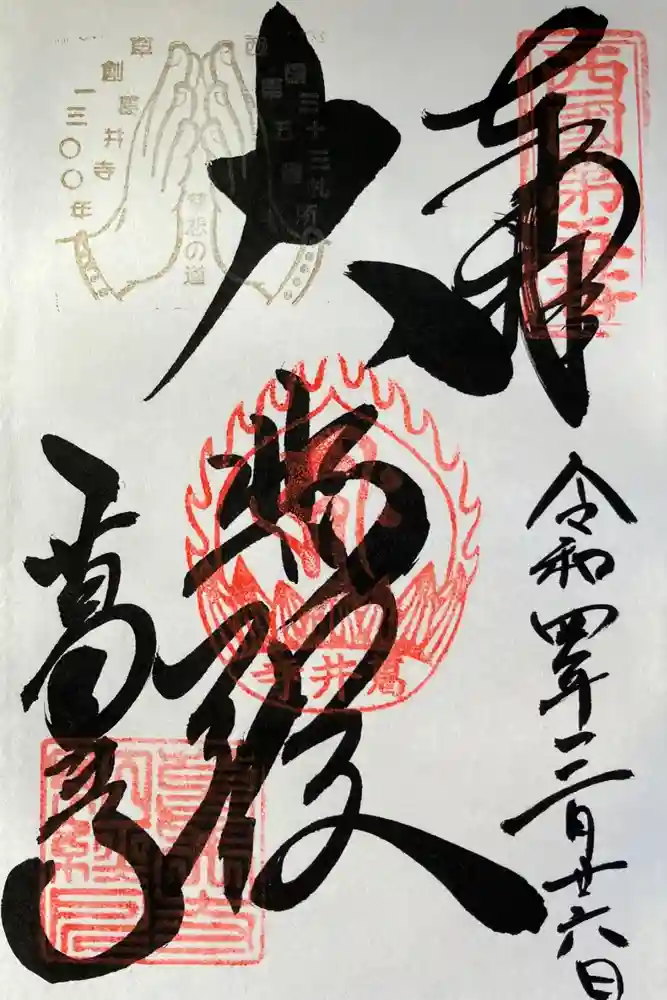 奉拝
西國第五番
令和四年三月廿六日
大悲殿
葛井寺
葛井寺
西國三十三札所
第五番
慈悲の道
草創葛井寺
一三〇〇年